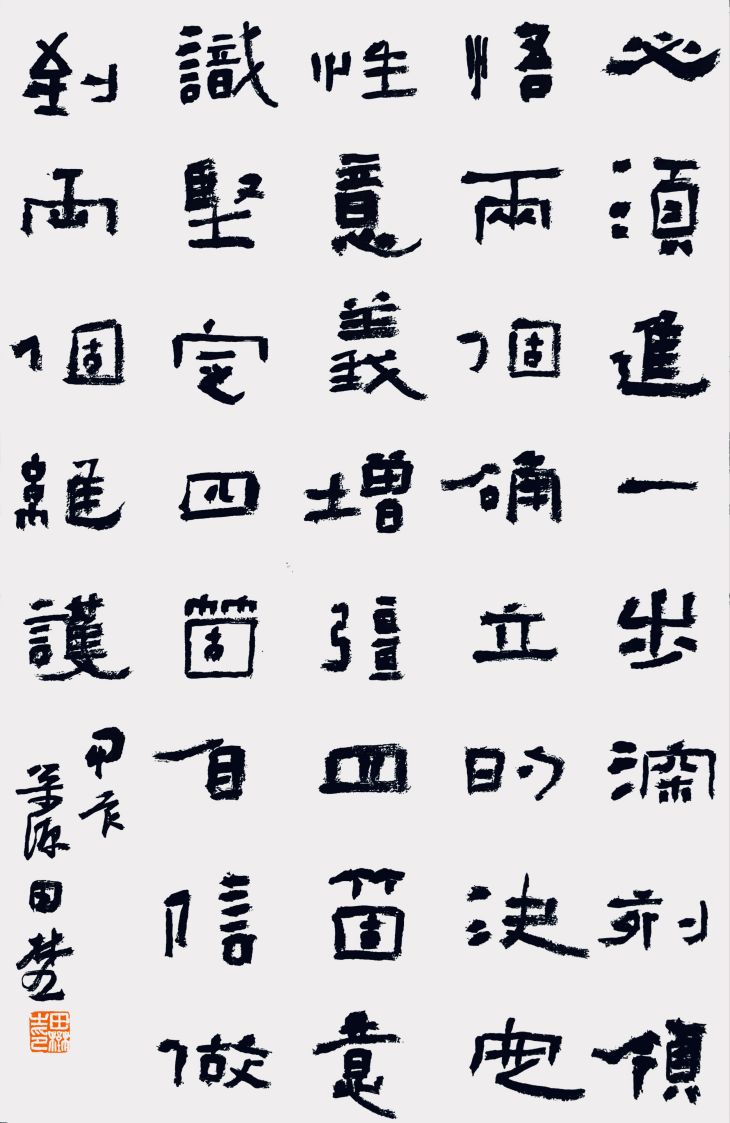 必須進一步深刻領
悟兩個确立的決定
性意義增彊四箇意
識堅定四箇自信做
到兩個維護
甲辰
田